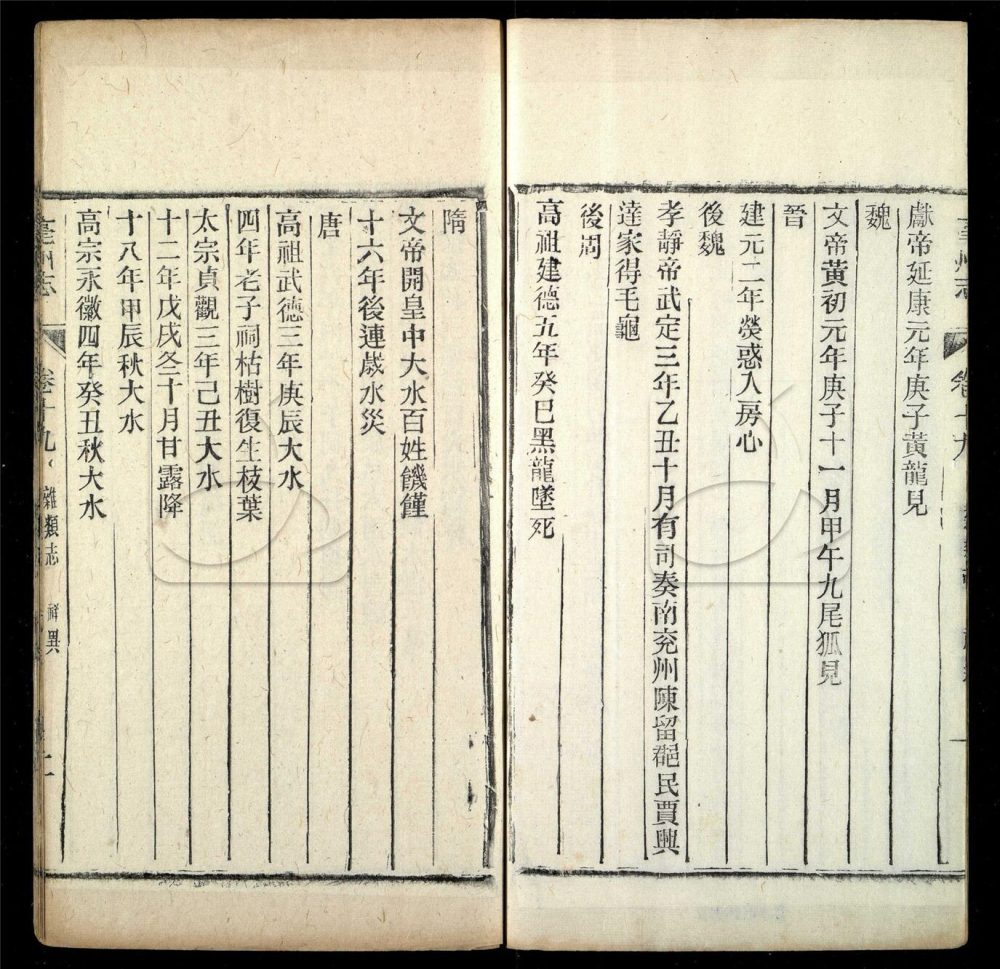 獻帝延康元年庚子黃龍見
魏
文帝黃初元年庚子十一月甲午九尾狐見
晉
建元二年熒惑入房心
後魏
孝靜帝武定三年乙丑十月有司奏南兖州陳留郡民賈興
達家得毛龜
後周
高祖建德五年癸巳黑龍墜死
隋
文帝開皇中大水百姓饑饉
十六年後連歲水災
唐
高祖武德三年庚辰大水
四年老子祠枯樹復生枝葉
太宗貞觀三年己丑大水
十二年戊戌冬十月甘露降
十八年甲辰秋大水
高宗永徽四年癸丑秋大水
亳州志 卷十九 雜類志 祥異 二